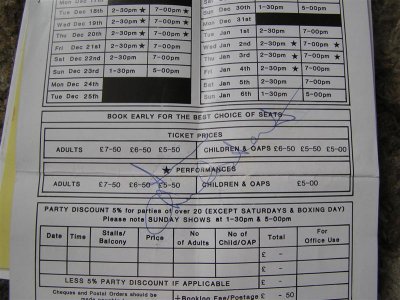 Tue Dec 18th ★ 2-30pm ★ 7-00pm
Wed Dec 19th 2-30pm ★ 7-00pm ★
Thu Dec 20th 2-30pm ★ 7-00pm ★
Fri Dec 21st 2-30pm ★ 7-00pm
Sat Dec 22nd 2-30pm 7-00pm
Sun Dec 23rd 1-30pm 5-00pm
Mon Dec 24th
Tue Dec 25th
Sun Dec 30th 1-30pm 5-00pm
Mon Dec 31st
Tue Jan 1st 2-30pm 7-00pm
Wed Jan 2nd 2-30pm ★ 7-00pm ★
Thu Jan 3rd 2-30pm ★ 7-00pm ★
Fri Jan 4th 2-30pm ★ 7-00pm
Sat Jan 5th 2-30pm 7-00pm
Sun Jan 6th 1-30pm 5-00pm
BOOK EARLY FOR THE BEST CHOICE OF SEATS
TICKET PRICES
ADULTS £7-50 £6-50 £5-50 CHILDREN & OAPS £6-50 £5-50 £5-00
★ PERFORMANCES
ADULTS £6-50 £5-50 CHILDREN & OAPS £5-00
PARTY DISCOUNT 5% for parties of over 20 (EXCEPT SATURDAYS & BOXING DAY)
Please note SUNDAY SHOWS at 1-30pm & 5-00pm
Date Time Stalls/Balcony Price No of Adults No of Child/OAP Total For Office Use
£ -
£ -
£ -
LESS 5% PARTY DISCOUNT IF APPLICABLE £ -
Cheques and Postal Orders should be
+Booking Fee/Postage £ - 50